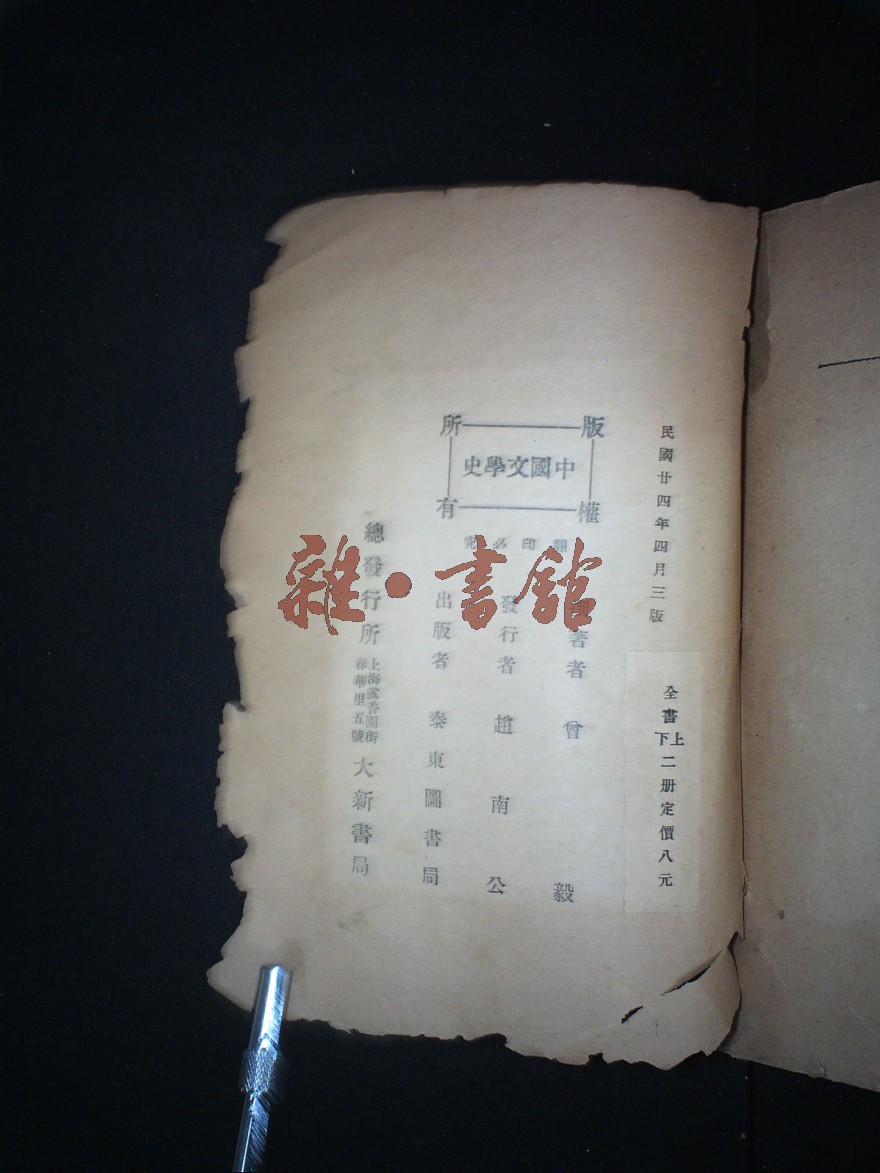 民國廿四年四月三版
全書上下二册定價八元
版權所有
中國文學史
翻印必究
著者 曾毅
發行者 趙南公
出版者 泰東圖書局
總發行所 上海雲香園街春華里五號 大新書局
雜·書館